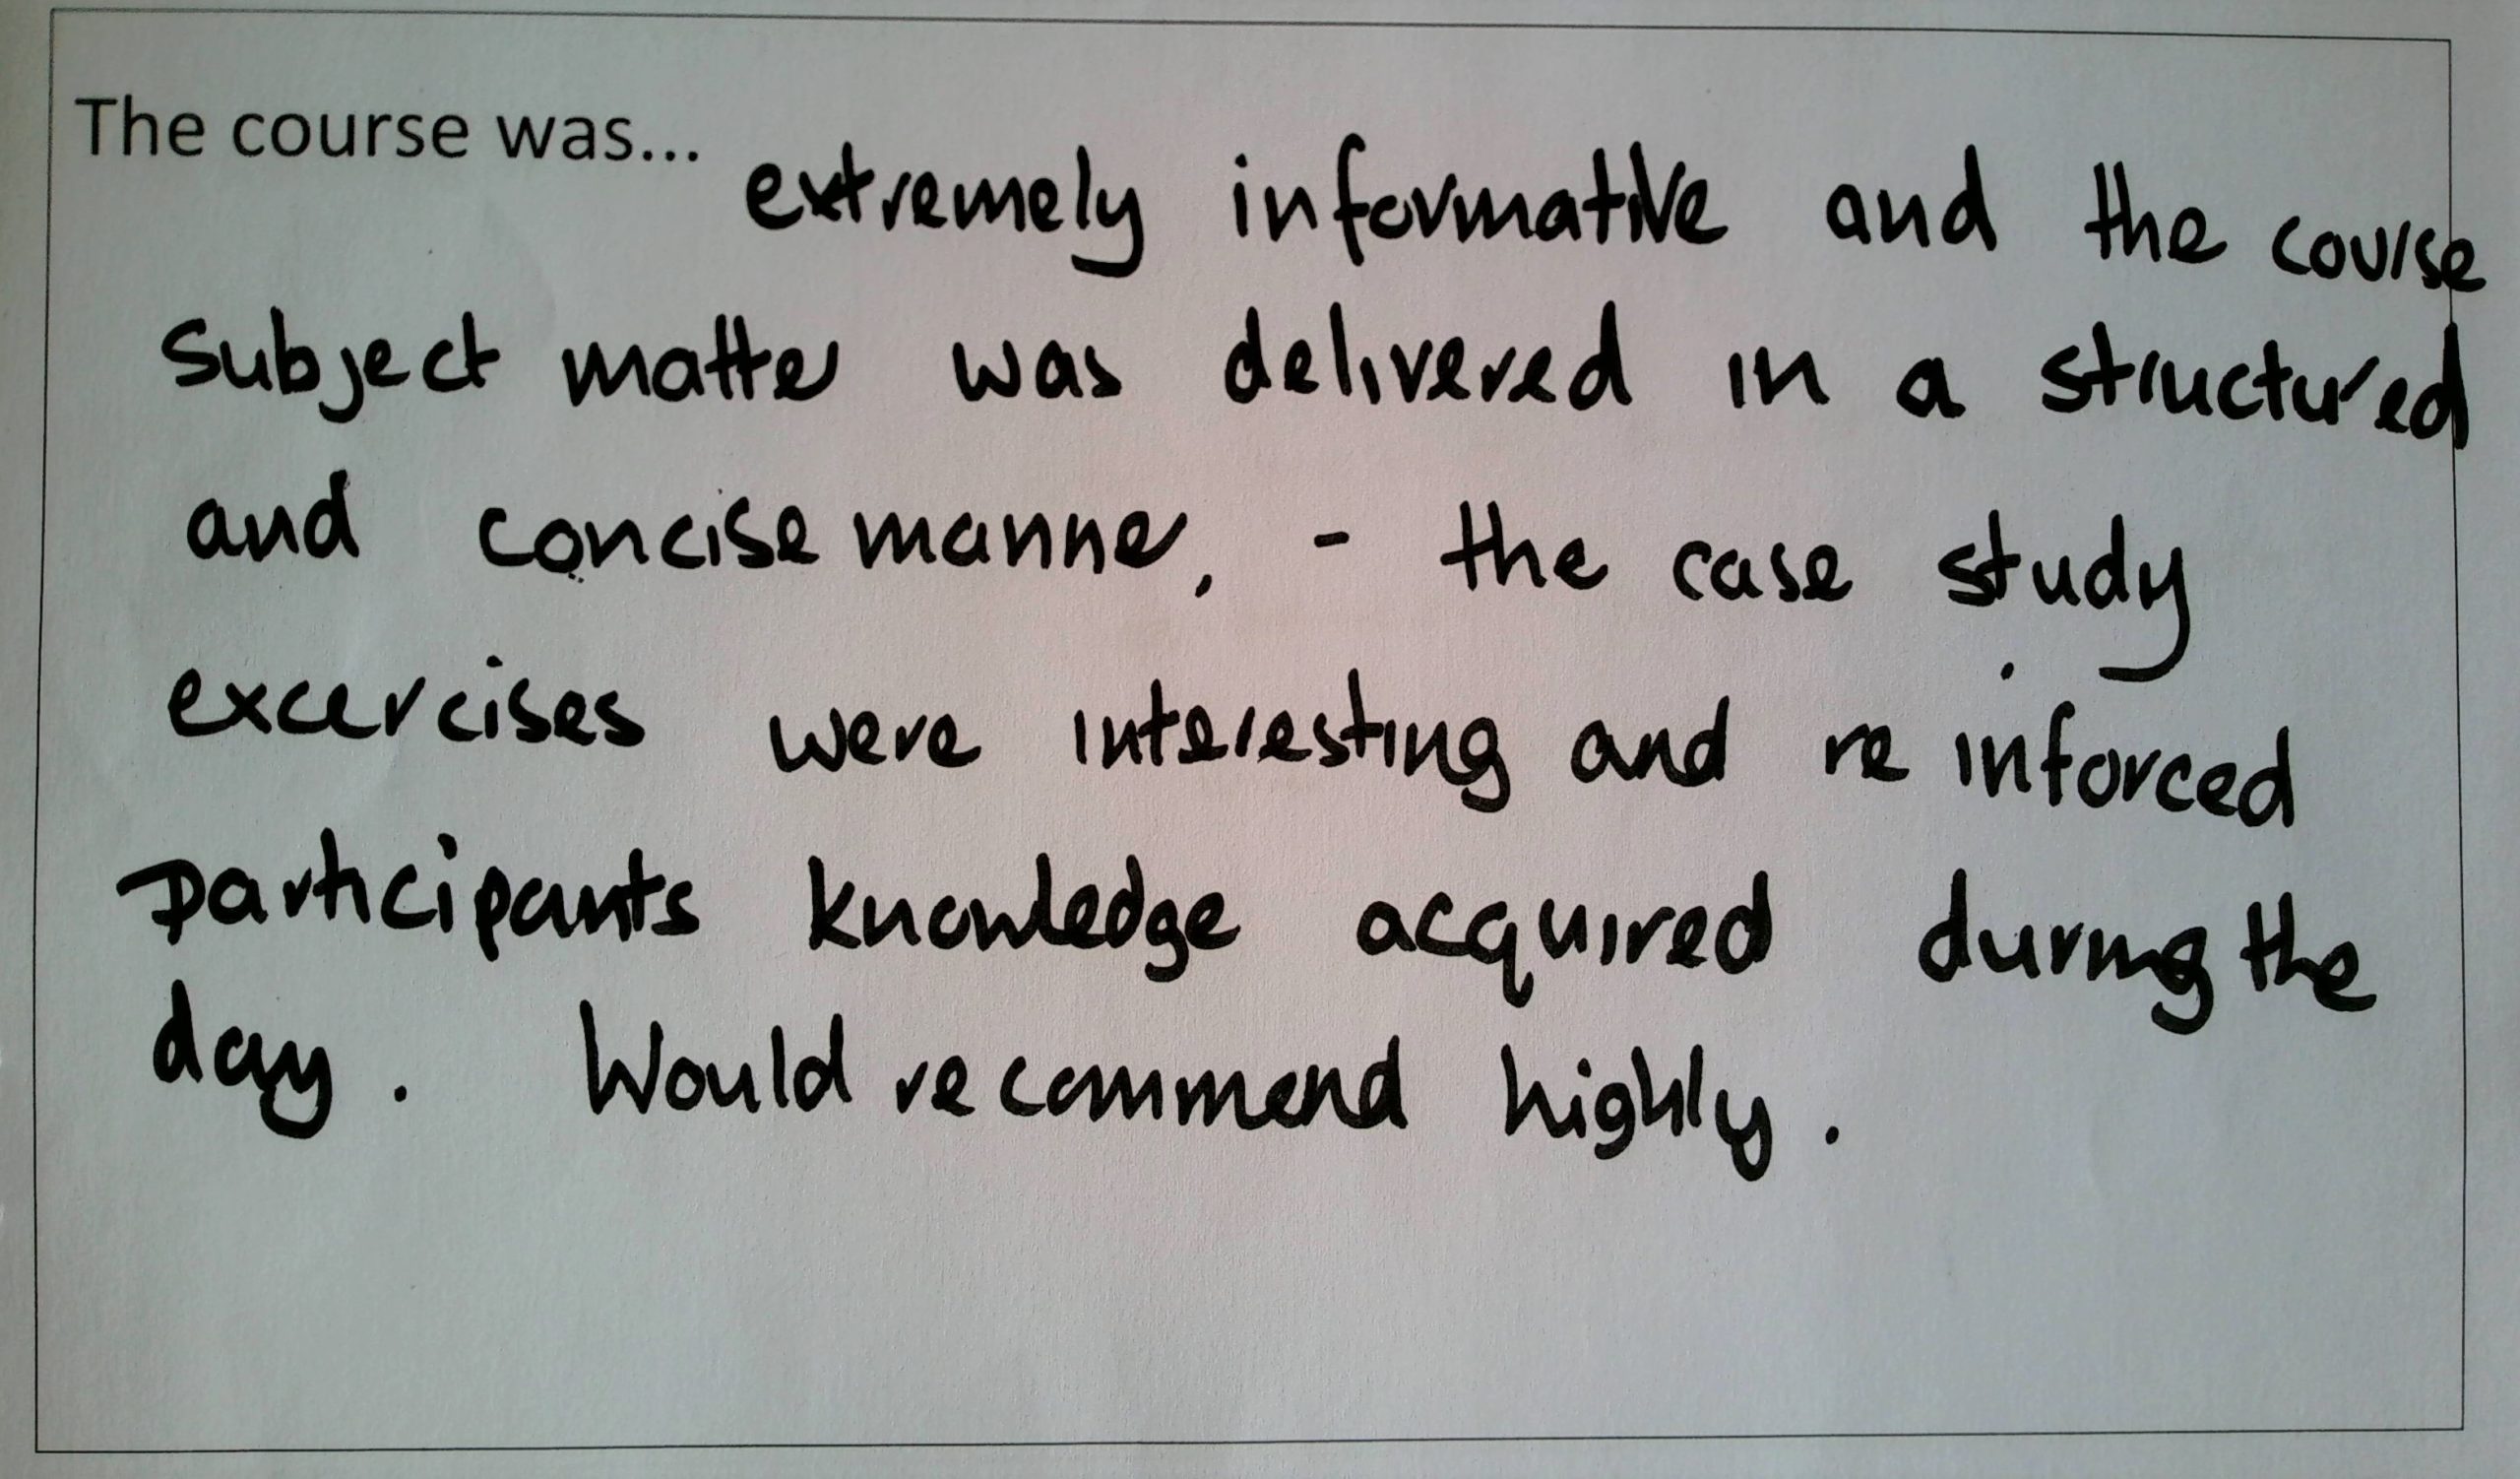 The course was... extremely informative and the course
subject matter was delivered in a structured
and concise manner, - the case study
excercises were interesting and re inforced
participants knowledge acquired during the
day. Would recommend highly.